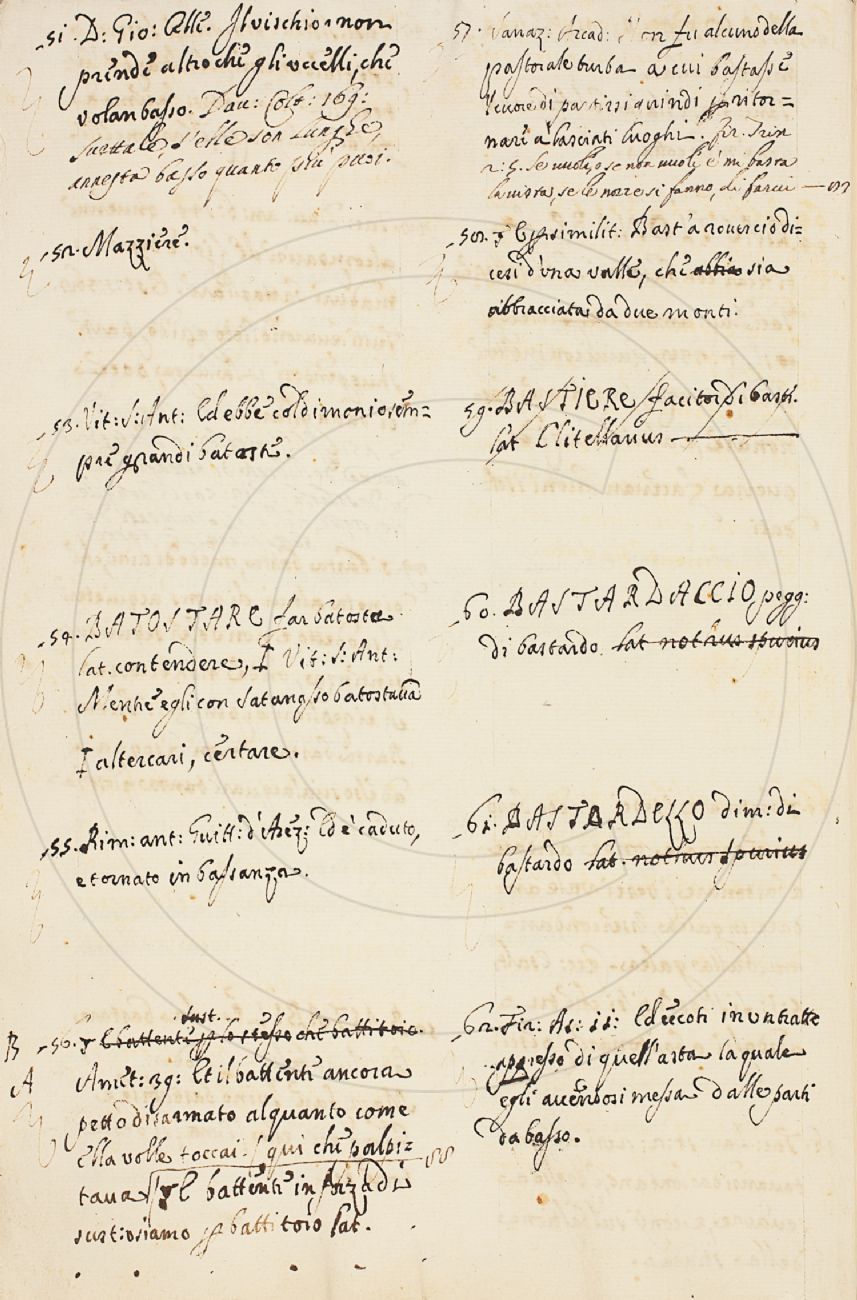 51. D: Gio: Cell. Il vischio non
prende altro che gli uccelli, che
volan basso. Dav: Colt: 169:
smettale, s'elle son lunghe,
annesta basso quanto più puoi.
52. Mazziere.
53. Vit: S: Ant: Ed ebbe col dimonio sem=
pre grandi batoste.
54. BATOSTARE far batoste
lat. contendere, I Vit: S: Ant:
Mentre egli con Satanasso batostava
I altercari, certare.
55. Rim: ant: Guitt: d'Arez: Ed è caduto,
e tornato in bassanza.
B
A
sust.
56. E battente p lo stesso che battitoio.
Amet: 39: Et il battente ancora
petto disarmato alquanto come
ella volle toccai. qui che palpi=
tava E battente in forza di
sust: usiamo p battitoio lat.
57. Sanaz: Arcad: Non fu alcuno della
pastorale turba a cui bastasse
l'cuore di partirsi quindi p ritor=
nare a' lasciati luoghi. Fir. Trin
2: 5. Se vuoglio se non vuoli e' mi basta
la vista, se le nozze si fanno, di farci
58. E p similit: Bast'a rovescio di=
cesi d'una valle, che abbia sia
abbracciata da due monti.
59. BASTIERE Facitor di basti.
lat Clitellarius
60. BASTARDACCIO pegg:
di bastardo. lat nothus spurius
61. BASTARDELLO dim: di
bastardo lat. nothus spurius
62. Fir: As: 11: Ed eccoti in un tratto
appresso di quell'asta la quale
egli avendosi messa dalle parti
da basso.